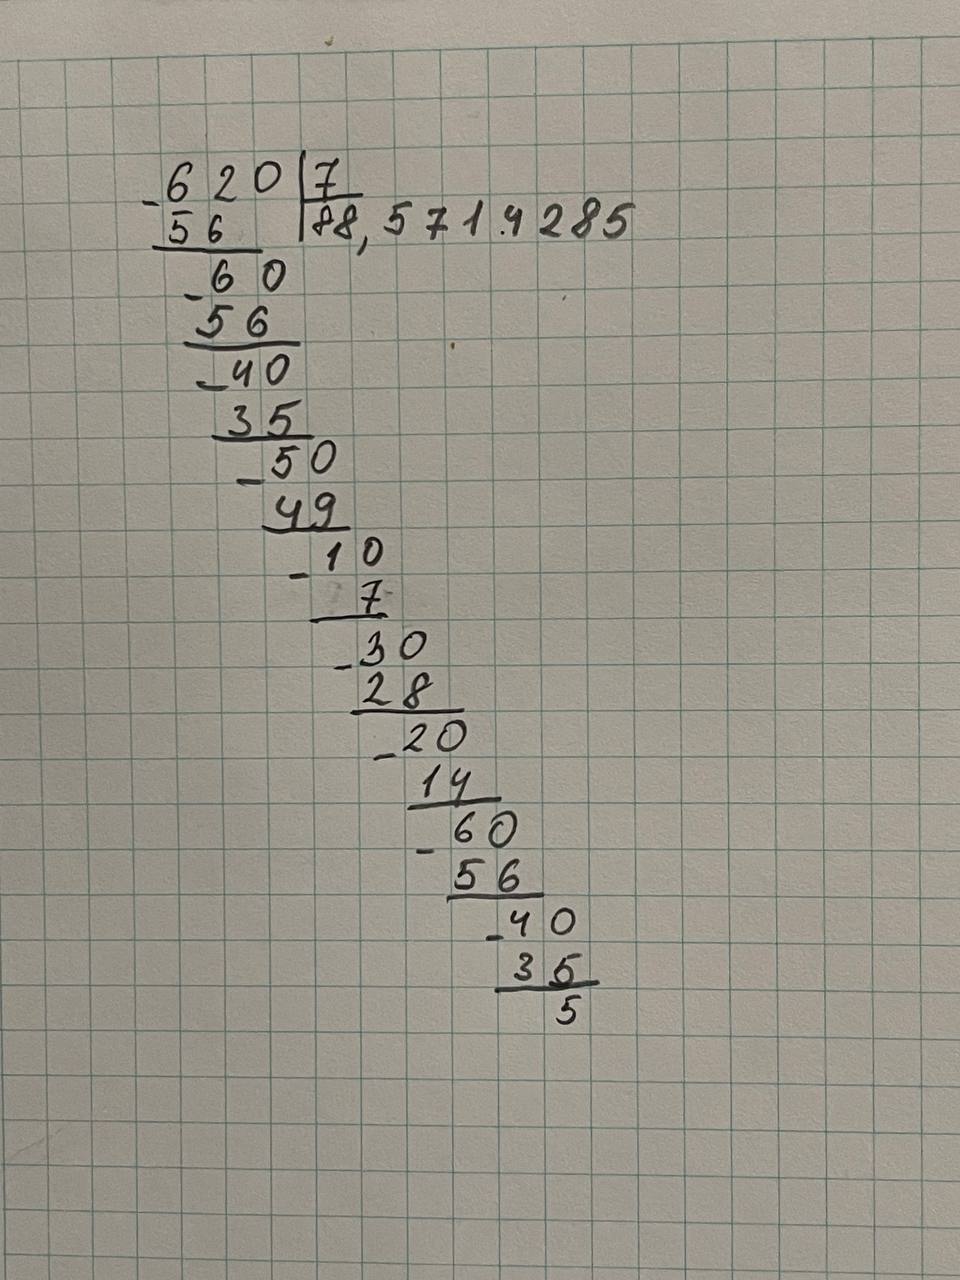 -620|7
56 |88,5714285
-60
56
-40
35
-50
49
-10
7
-30
28
-20
14
-60
56
-40
35
5